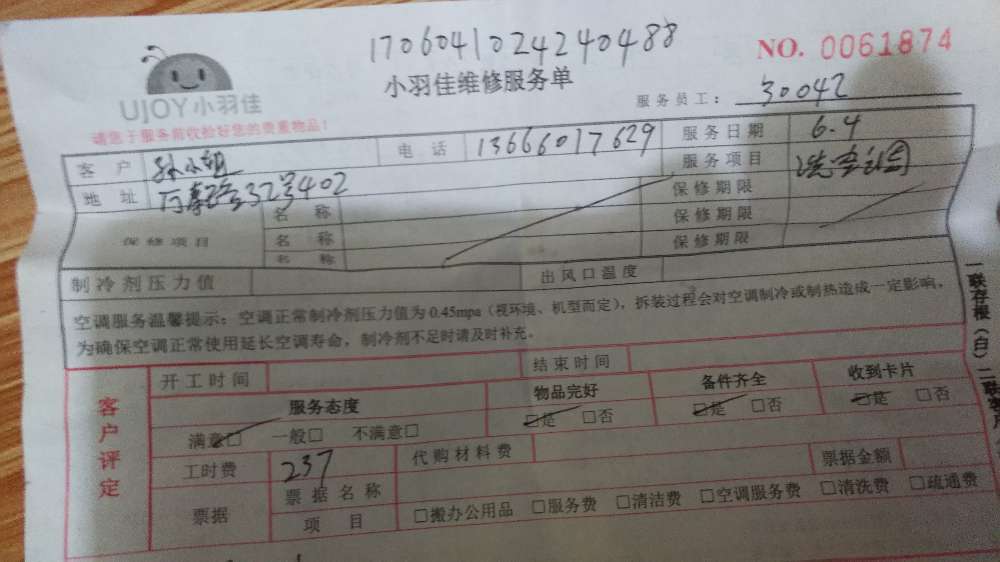 1706041024240488
NO. 0061874
UJOY小羽佳
小羽佳维修服务单
服务员工： 30042
请您于服务前收拾好您的贵重物品！
客 户 孙小姐 电 话 13666017629 服务日期 6.4
地 址 32号402 服务项目 洗空调
保修项目 名 称 保修期限
名 称 保修期限
名 称 保修期限
制冷剂压力值 出风口温度
空调服务温馨提示：空调正常制冷剂压力值为0.45mpa（视环境、机型而定），拆装过程会对空调制冷或制热造成一定影响，
为确保空调正常使用延长空调寿命，制冷剂不足时请及时补充。
客户评定
开工时间 结束时间
服务态度 物品完好 备件齐全 收到卡片
满意□ 一般□ 不满意□ □是 □否 □是 □否 □是 □否
工时费 237 代购材料费 票据金额
票据 票据名称
项 目 □搬办公用品 □服务费 □清洁费 □空调服务费 □清洗费 □疏通费
一联存根（白）二联